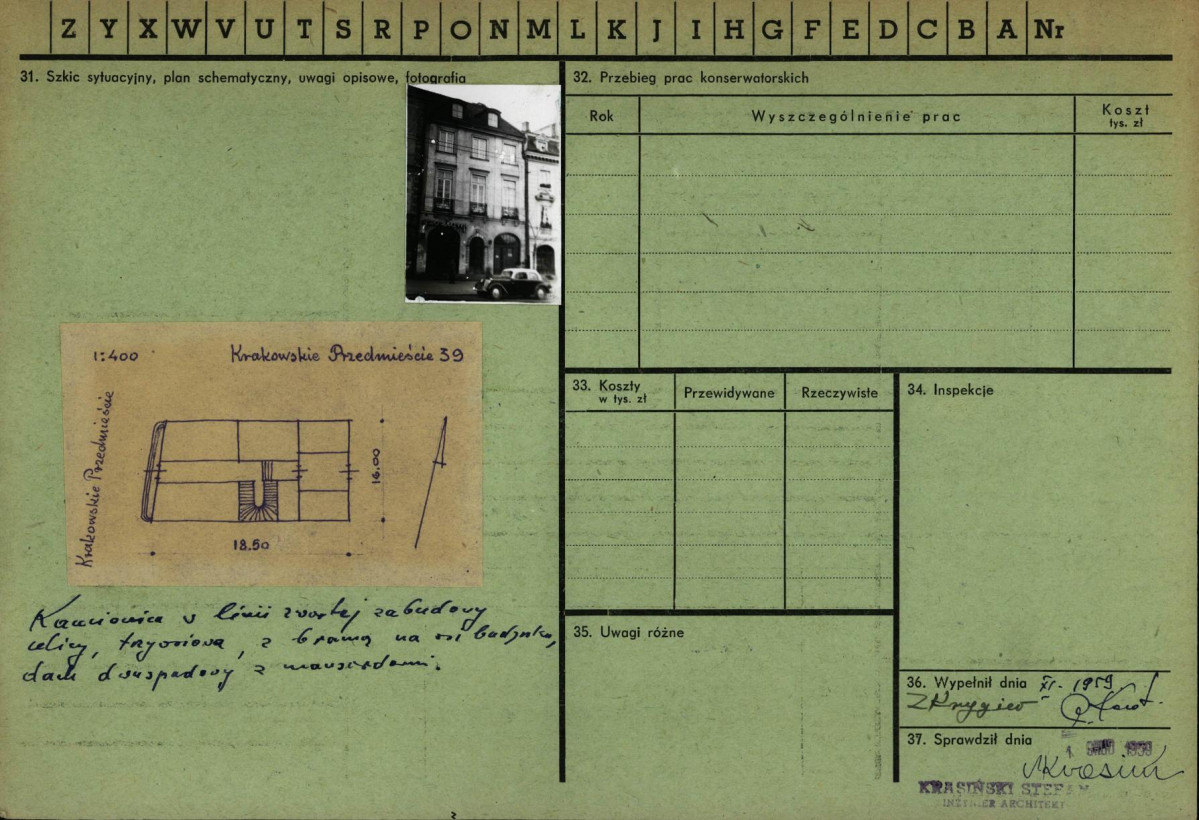 Z Y X W V U T S R P O N M L K J I H G F E D C B A Nr
31. Szkic sytuacyjny, plan schematyczny, uwagi opisowe, fotografia
1:400 Krakowskie Przedmieście 39
Krakowskie Przedmieście
16.00
18.50
Kamienica w linii zwartej zabudowy
ulicy, trzyosiowa, z bramą na osi budynku,
dach dwuspadowy z mansardami.
32. Przebieg prac konserwatorskich
Rok Wyszczególnienie prac Koszt
tys. zł
33. Koszty
w tys. zł
Przewidywane Rzeczywiste
34. Inspekcje
35. Uwagi różne
36. Wypełnił dnia XI - 1959
37. Sprawdził dnia
1. 1959
KRASIŃSKI STEFAN
INŻYNIER ARCHITEKT